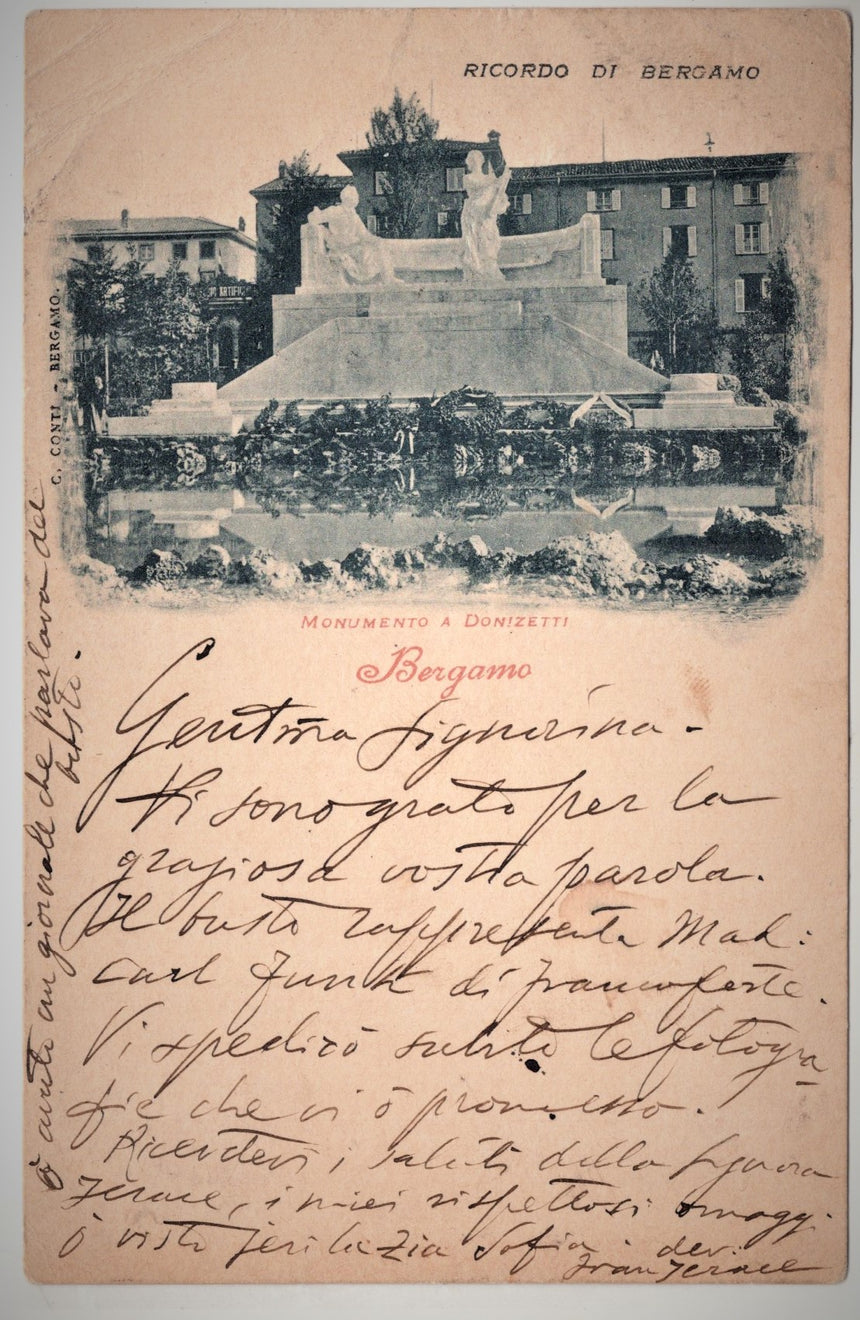 RICORDO DI BERGAMO
ARTIFIC
C. CONTI. - BERGAMO.
MONUMENTO A DONIZETTI
Bergamo
Gentma Signorina -
Vi sono grato per la
graziosa vostra parola.
Il busto rappresenta Mad:
Carl Funk di Francoforte.
Vi spedirò subito le fotogra
fie che vi ò promesso.
Ricevetevi i saluti della Signora
Jerace, i miei rispettosi omaggi.
ò visto jeri la Zia Sofia. dev:
Fran Jerace
ò avuto un giornale che parlava del
busto.